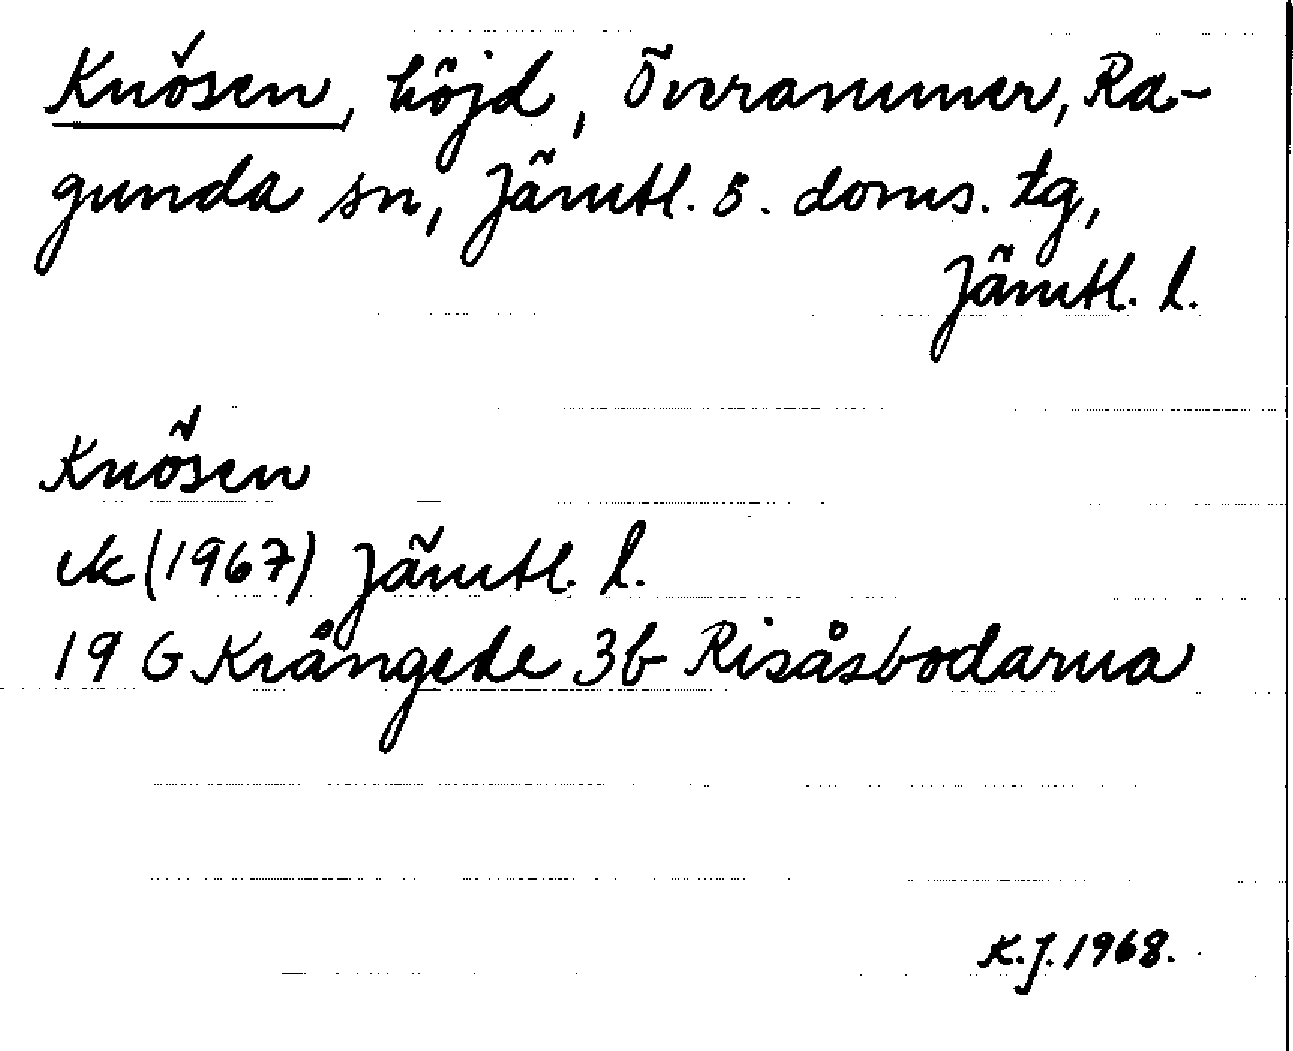 Knösen, höjd, Överammer, Ra-
gunda sn, Jämtl. ö. doms. tg,
Jämtl. l.
Knösen
ek (1967) Jämtl. l.
19 G Krångede 3b Risåsbodarna
K.J. 1968.